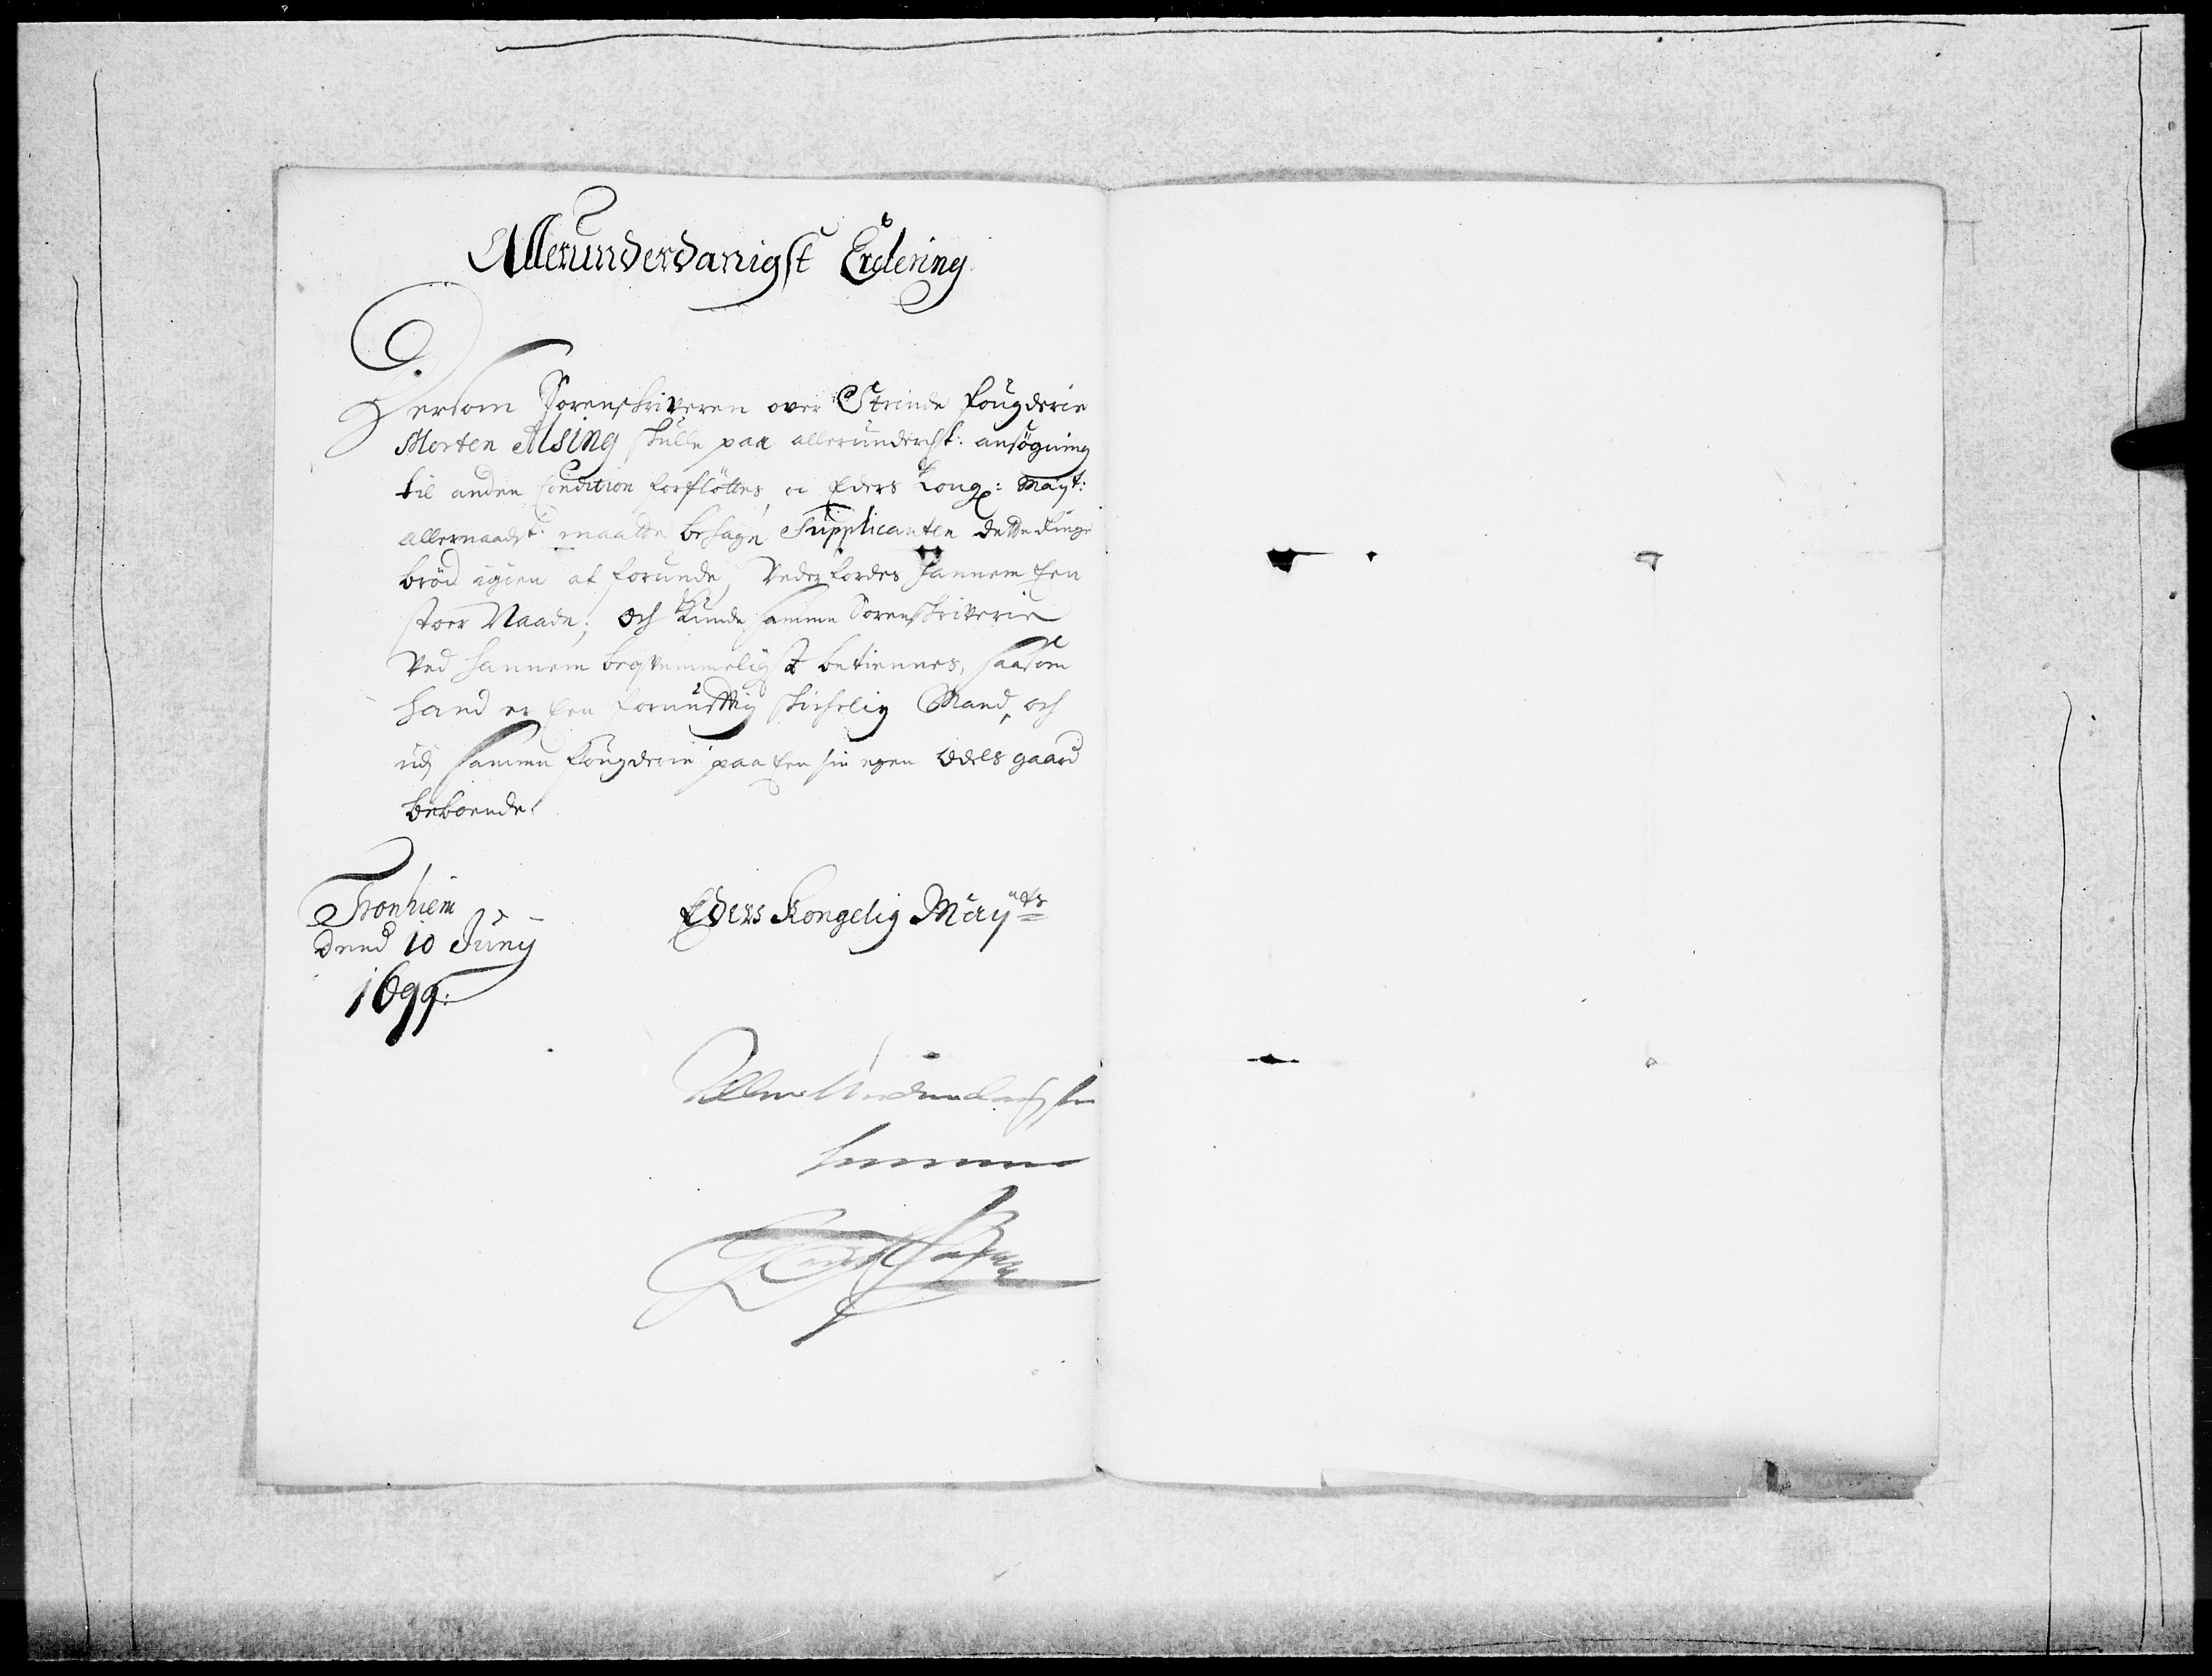 Allerunderdanigst Erclering
Dersom Sorenskriveren over Strinde fougderie
Morten Alsing skulle paa allerunderdst: ansögning
til anden Condition forflöttes, oc Eders Kong: Mayt:
allernaadst: maatte behage Supplicanten dette ringe
bröd igien at forunde, vederfordes hannem Een
stoer Naade; och kunde samme Sorenskriverie
ved hannem beqvemmeligst betiennes, saasom
hand er Een fornufftig skichelig Mand, och
udj samme fougderie paa Een sin egen Odels gaard
beboende.
Tronhiem
dend 10 Juny
1699:
Eders Kongelig Mayts
Allerunderdanigste